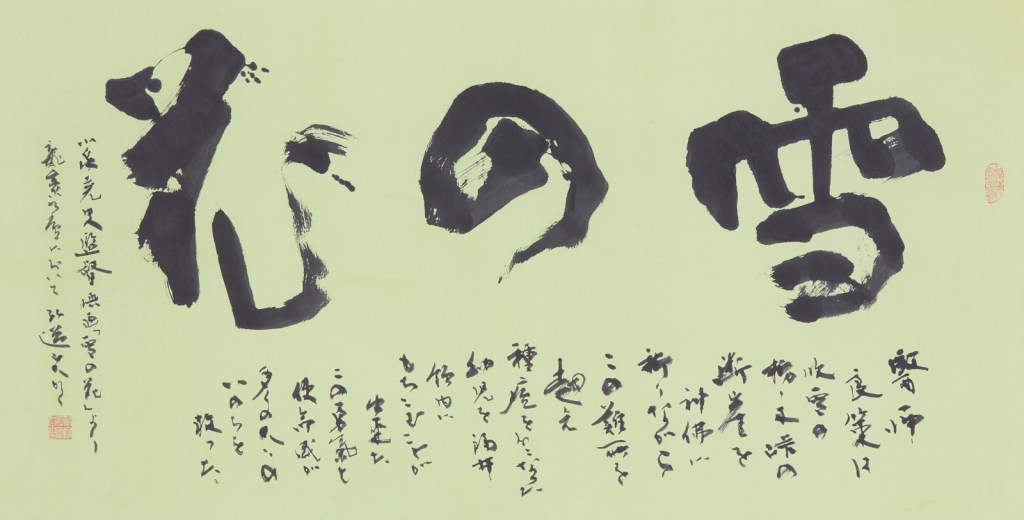 雪の花
醫師
良策は
吹雪の
栃ノ木峠の
断崖を
神佛に
祈りながら
この難所を
超え
種痘をほどこした
幼児を福井
領内に
もちこむことが
出来た
この勇氣と
使命感が
多くの人々の
いのちを
救った。
小泉堯史監督映画「雪の花」より